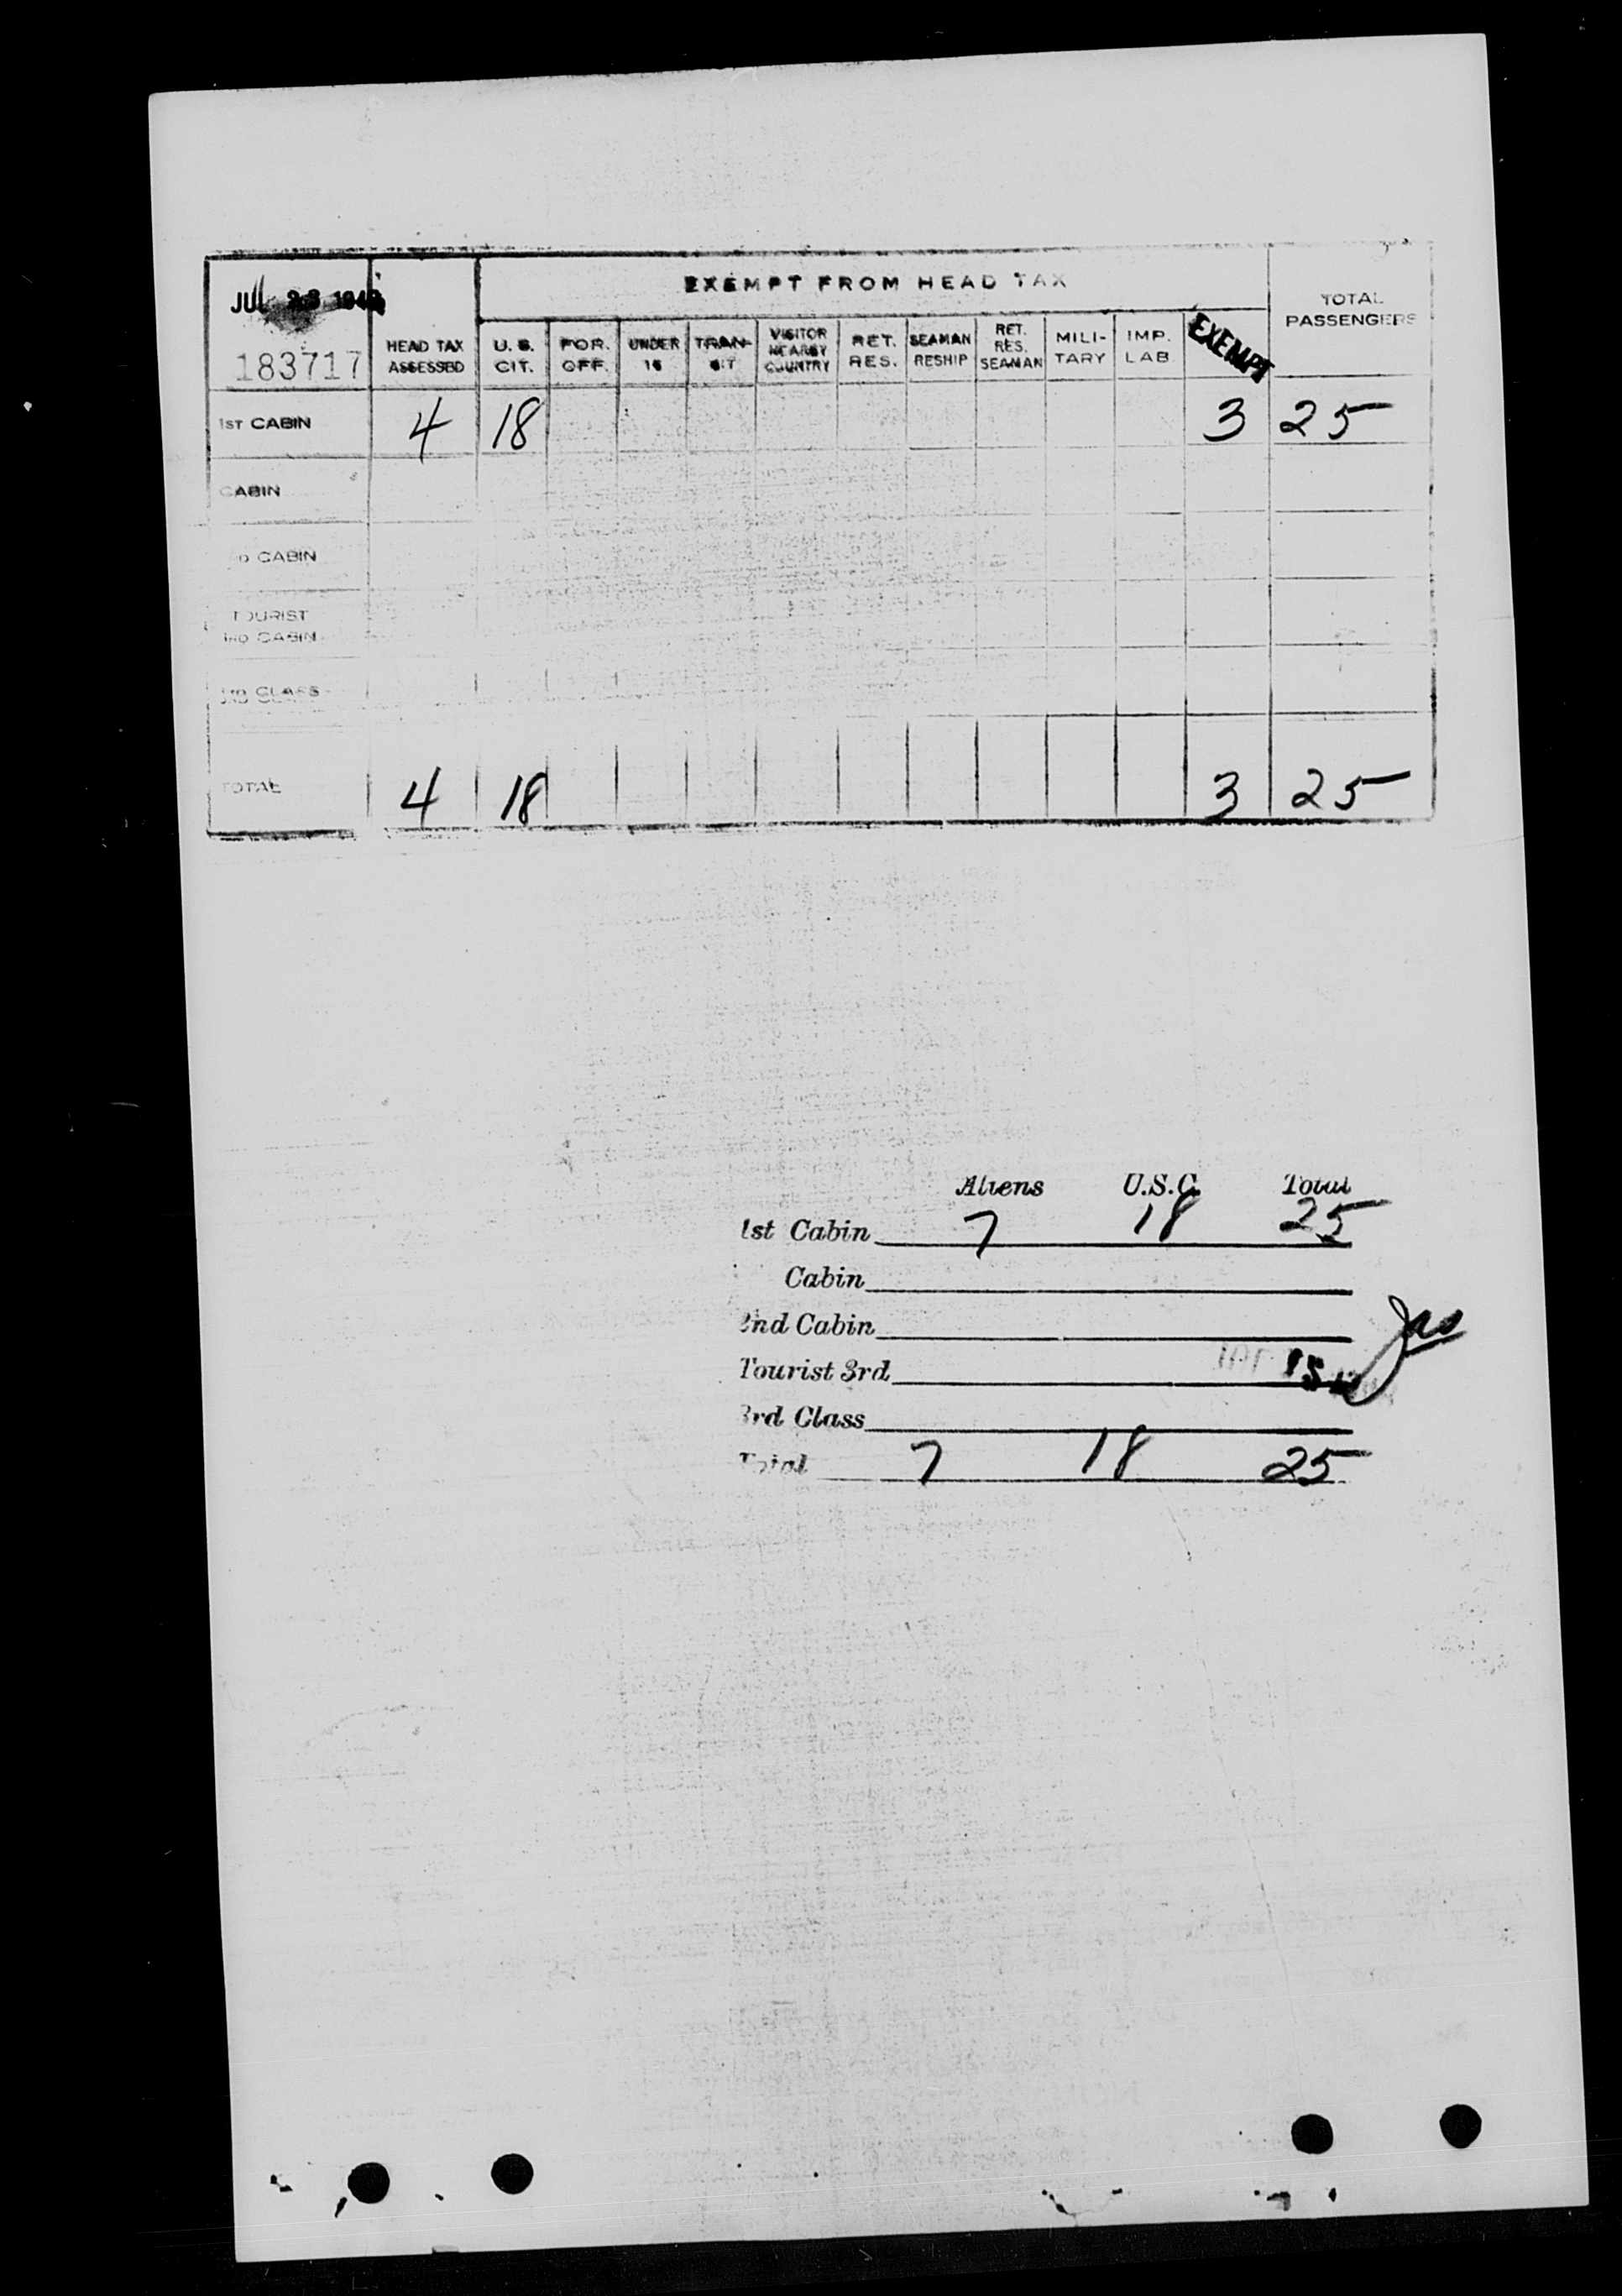 EXEMPT FROM HEAD TAX
JUL 23
183717
HEAD TAX ASSESSED
U. S. CIT.
FOR. OFF.
UNDER 16
TRAN- SIT
VISITOR NEARBY COUNTRY
RET. RES.
SEAMAN RESHIP
RET. RES. SEAMAN
MILI- TARY
IMP. LAB.
EXEMPT
TOTAL PASSENGERS
1ST CABIN 4 18 3 25
CABIN
CABIN
TOURIST
CABIN
CLASS
TOTAL 4 18 3 25
Aliens U.S.C. Total
1st Cabin 7 18 25
Cabin
2nd Cabin
Tourist 3rd
3rd Class
Total 7 18 25